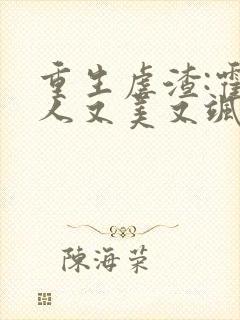 重生虐渣:霍
人又美又飒
陳海荣